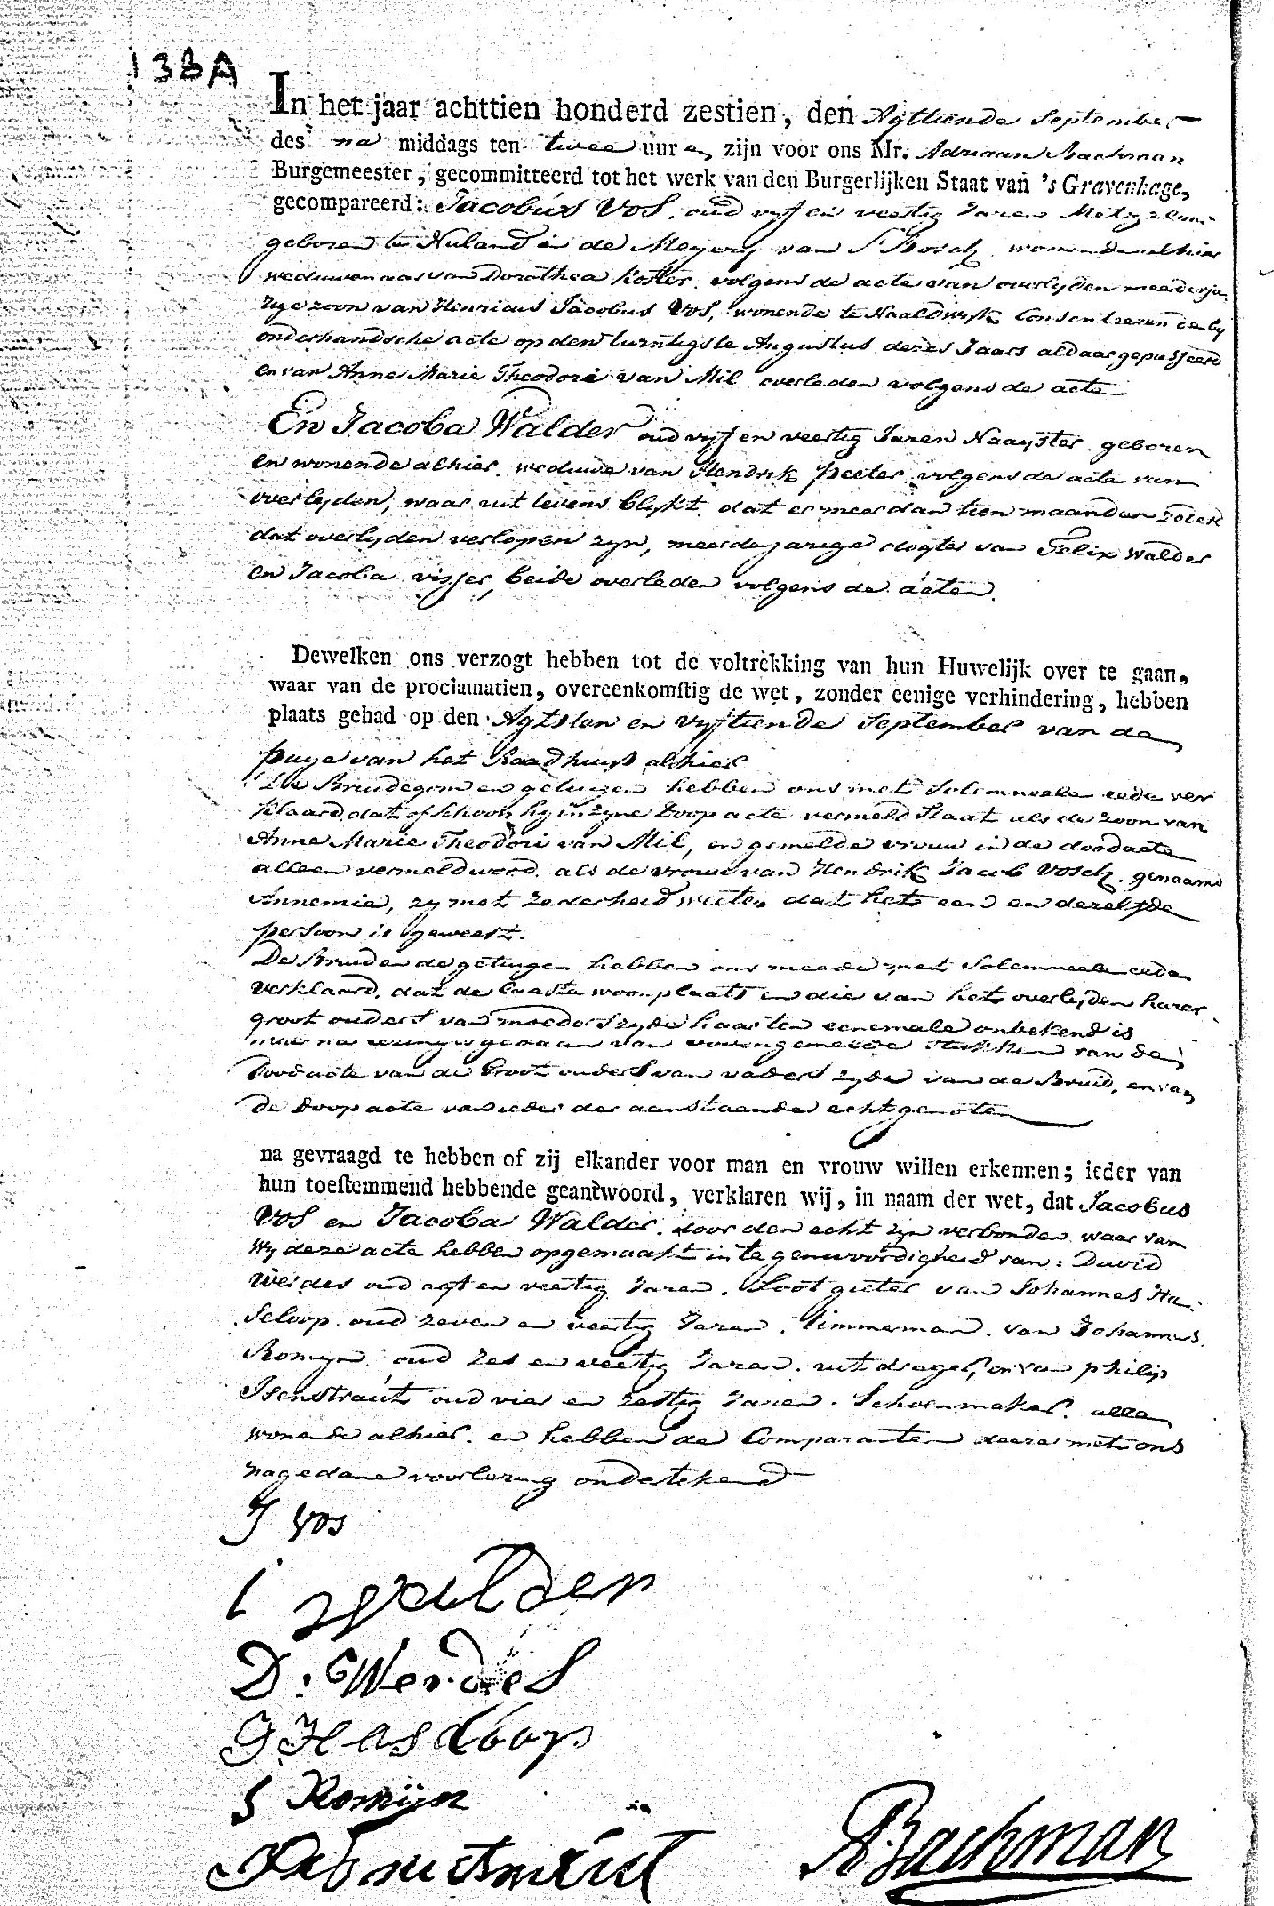 138A
In het jaar achttien honderd zestien, den Agttiende September
des na middags ten twee uure, zijn voor ons Mr. Adriaan Bachman
Burgemeester, gecommitteerd tot het werk van den Burgerlijken Staat van 's Gravenhage,
gecompareerd: Jacobus Vos. oud vyf en veertig Jaren
geboren te Nuland in de Meyery van S Bosch. wonende alhier
weduwenaar van Dorothea Koster. volgens de acte van overlyden meerderja-
rige zoon van Henricus Jacobus Vos, wonende te Naaldwyk Consenterende by
onderhandsche acte op den twintigste Augustus dezes Jaars aldaar gepasseerd
en van Anne Marie Theodore van Mil overleden volgens de acte
En Jacoba Walder oud vyf en veertig Jaren Naayster geboren
en wonende alhier. weduwe van Hendrik Peeter volgens de acte van
overlyden, waar uit tevens blykt dat er meer dan tien maanden zedert
dat overlyden verlopen zyn, meerderjarige dogter van Felix Walder
en Jacoba Visser, beide overleden volgens de acten.
Dewelken ons verzogt hebben tot de voltrekking van hun Huwelijk over te gaan,
waar van de proclamatien, overeenkomstig de wet, zonder eenige verhindering, hebben
plaats gehad op den Agtsten en vyftiende September van de
puye van het Raadhuys alhier
De Bruidegom en getuigen hebben ons met Solemneelen eede ver
klaard, dat ofschoon hy in zyne Doop acte vermeld staat als de zoon van
Anne Marie Theodore van Mil, en gemelde vrouw in de dood acte
alleen vermeld word. als de vrouw van Hendrik Jacob Vosch. genaamd
Annemie, zy met zekerheid weten dat het een en dezelfde
persoon is geweest.
De Bruid en de getuigen hebben ons meede met Solemneelen eede
verklaard, dat de laaste woonplaats en die van het overlyden harer
groot ouders van moeders zyde haar ten eenemale onbekend is
van de
Dood acte van de Groot ouders van vaders zyde van de Bruid, en van
de doop acte van ieder der aenstaande echtgenoten
na gevraagd te hebben of zij elkander voor man en vrouw willen erkennen; ieder van
hun toestemmend hebbende geantwoord, verklaren wij, in naam der wet, dat Jacobus
Vos en Jacoba Walder. door den echt zyn verbonden waar van
Wy deze acte hebben opgemaakt in tegenwoordigheid van: David
Werdes oud agt en veertig Jaren. Loot gieter van Johannes Ha-
seloop. oud zeven en veertig Jaren. Timmerman. van Johannes
Romyn oud zes en veertig Jaren. uitdrager, en van Philip
Isenstraut oud vier en zestig Jaren. Schoenmaker. allen
wonende alhier. en hebben de Comparanten deeze met ons
na gedane voorlezing ondertekend
J Vos
i walder
D. Werdes
G Haseloop
J Romijn
ABachman